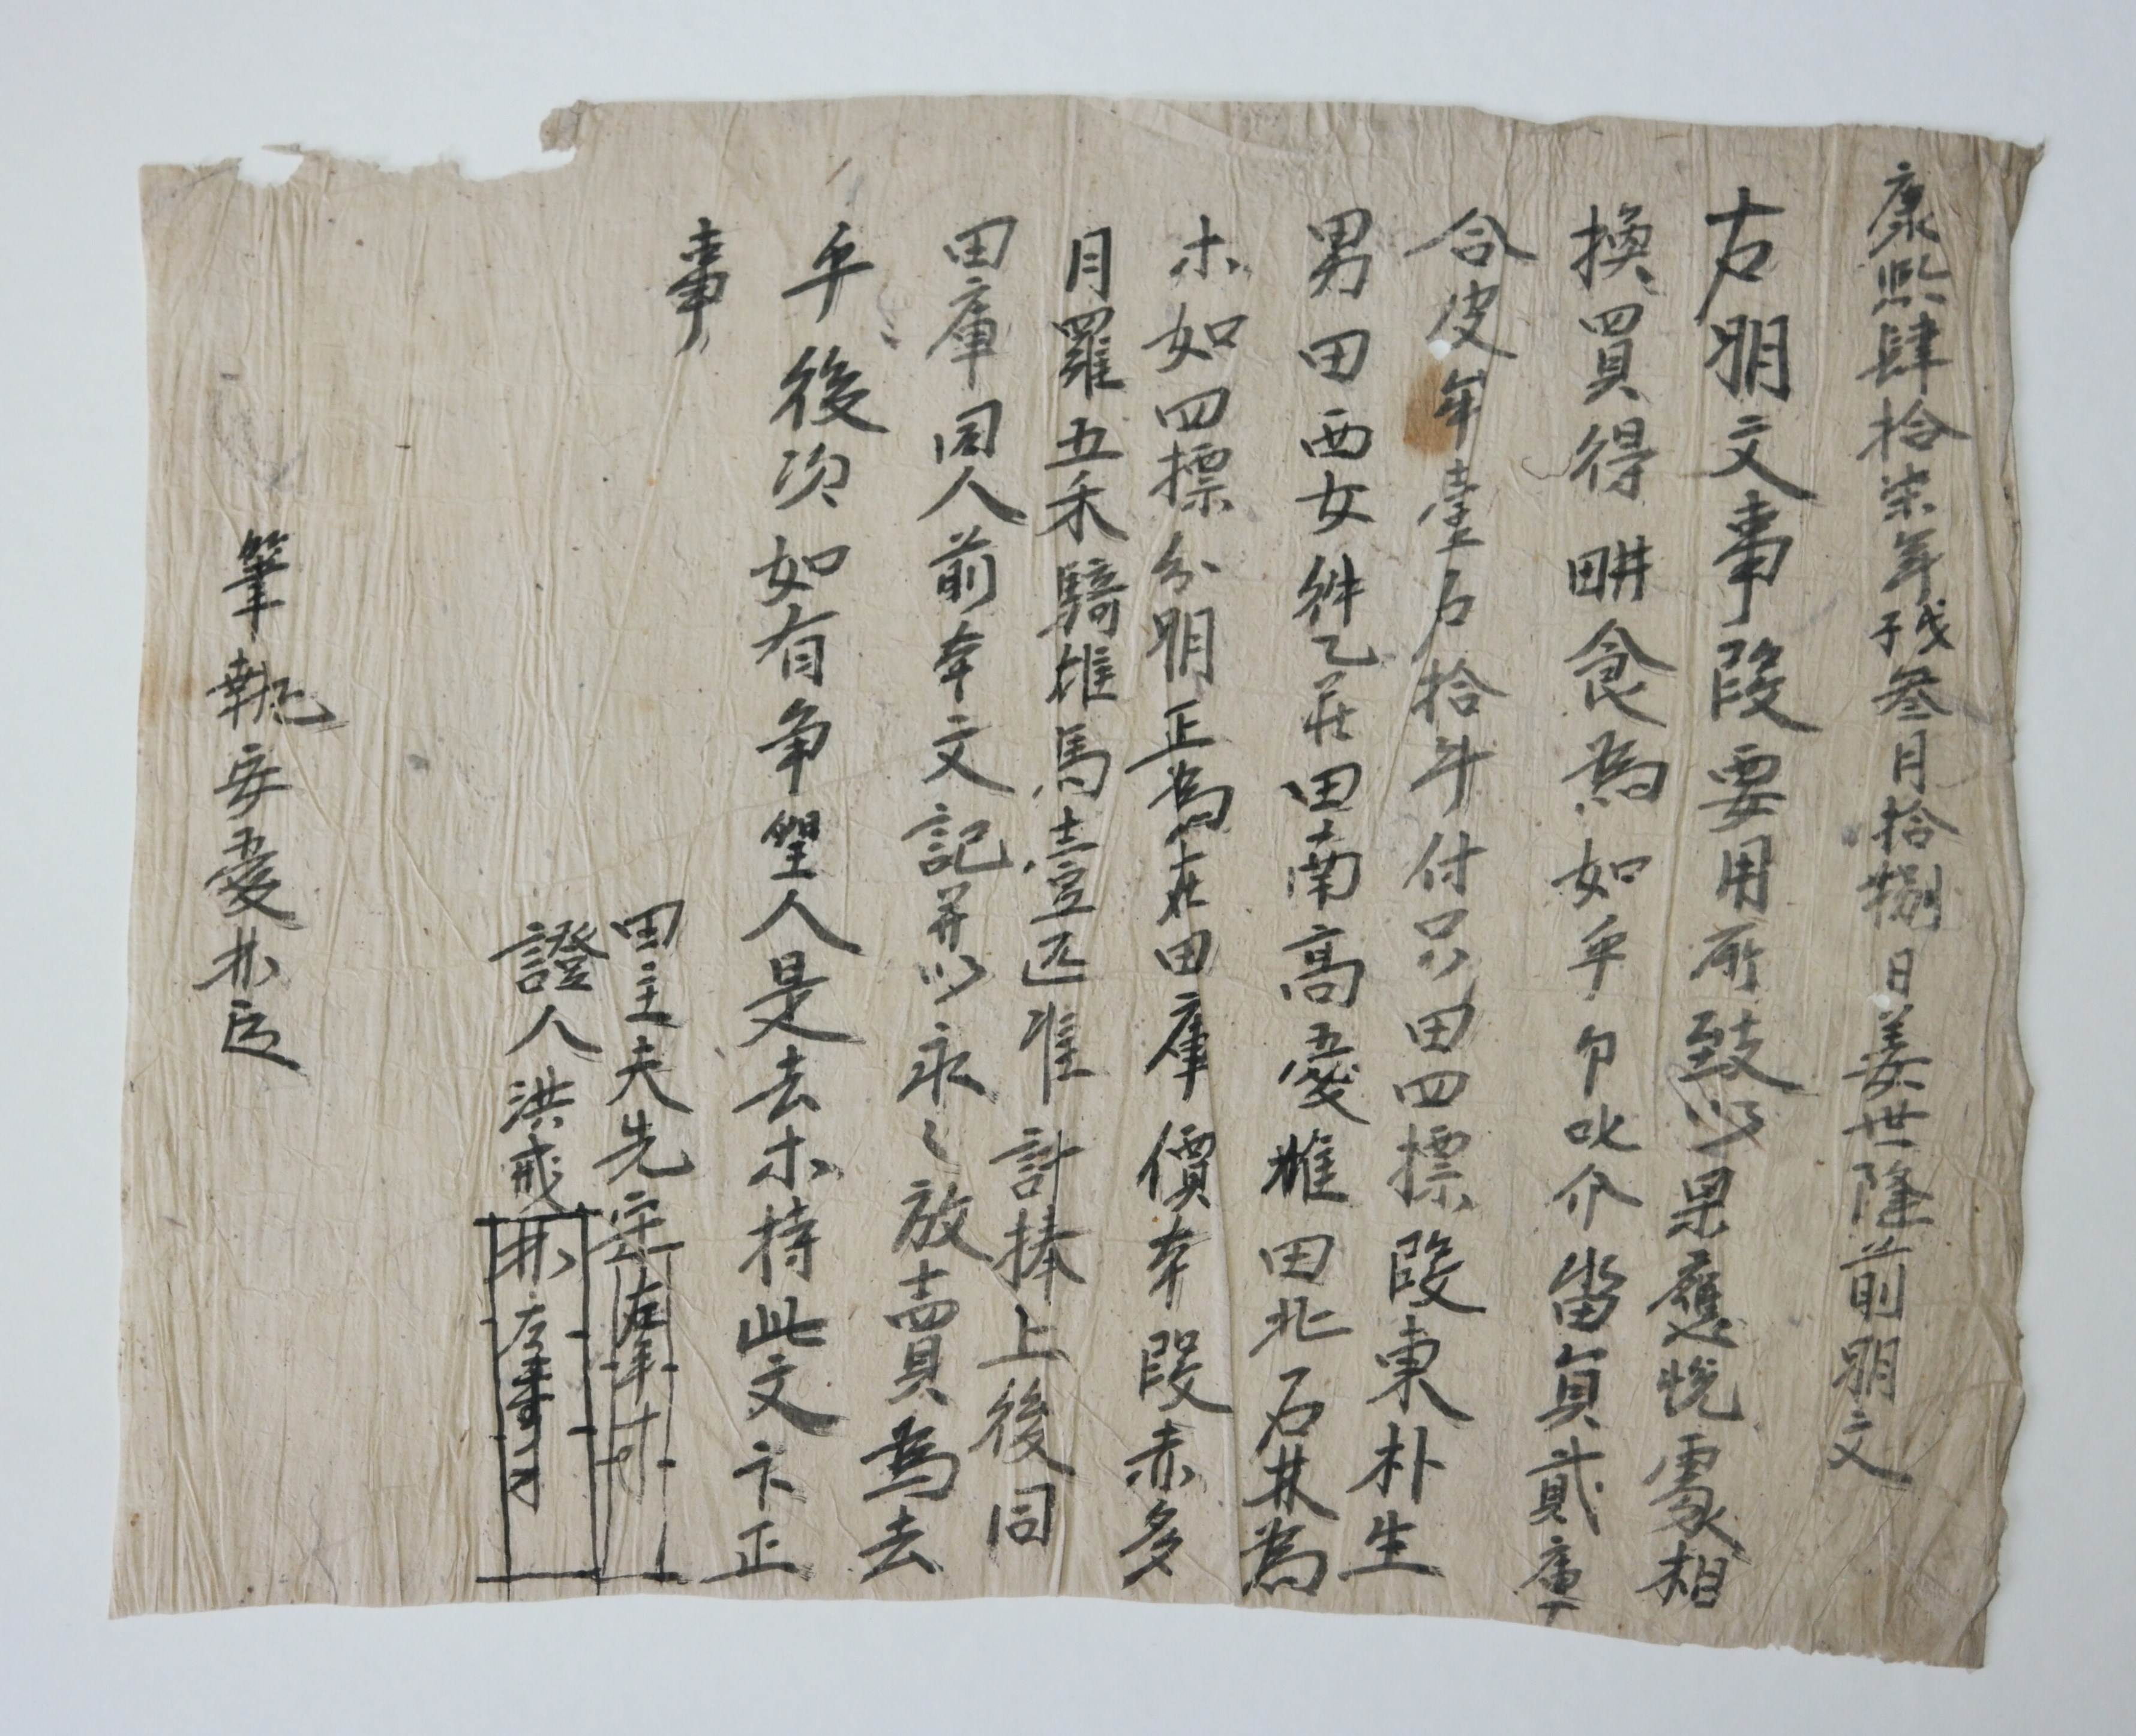 康熙肆拾柒年戊子叁月拾捌日姜世隆前明文
右明文事段要用所致以果應悅處相
換買得畊食爲如乎印叱介畓員貳庫
合皮牟壹石拾斗付只田四標段東朴生
男田西女件乙莊田南高愛雄田北石井爲
木如四標分明正爲在田庫價本段赤多
月羅五禾騎雄馬壹匹准計捧上後同
田庫同人前本文記幷以永〻放賣爲去
乎後次如有爭望人是去木持此文卞正
事
田主夫先 左手寸
證人洪戒 左手寸
筆執安愛